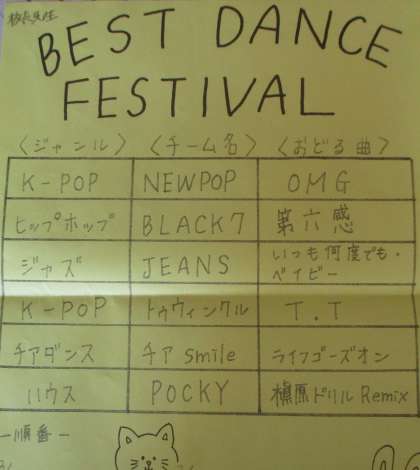 校長先生
BEST DANCE
FESTIVAL
〈ジャンル〉 〈チーム名〉 〈おどる曲〉
K-POP NEWPOP OMG
ヒップホップ BLACK7 第六感
ジャズ JEANS いつも何度でも・
ベイビー
K-POP トゥウィンクル T.T
チアダンス チアsmile ライフゴーズオン
ハウス POCKY 槇原ドリルRemix
ー順番ー